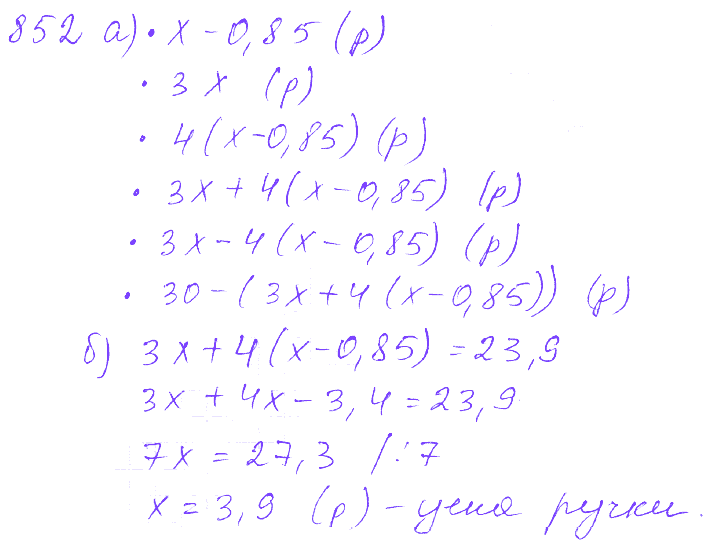 852 а) • x – 0,85 (р)
• 3x (р)
• 4(x–0,85) (р)
• 3x + 4(x – 0,85) (р)
• 3x – 4(x – 0,85) (р)
• 30 – (3x + 4(x – 0,85)) (р)
б) 3x + 4(x – 0,85) = 23,9
3x + 4x – 3,4 = 23,9
7x = 27,3 /:7
x = 3,9 (р) – цена ручки.